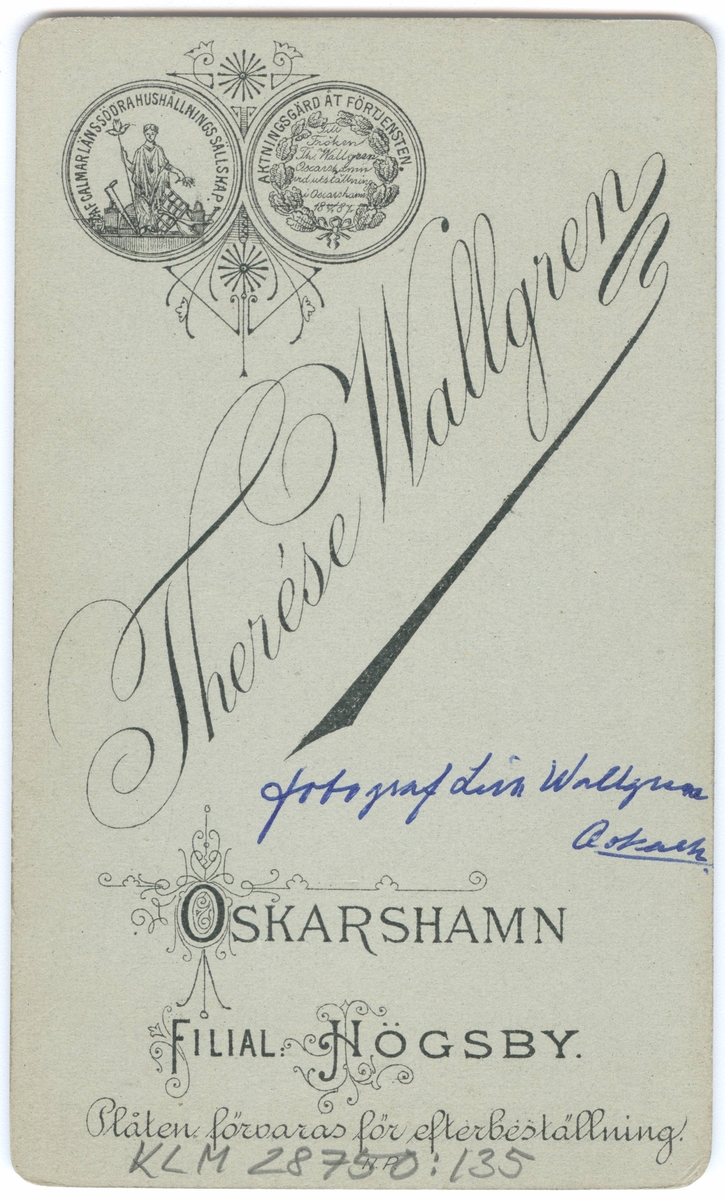 AF CALMAR LÄNS SÖDRA HUSHÅLLNINGS SÄLLSKAP.
AKTNINGSGÄRD ÅT FÖRTJENSTEN.
till
Fröken
Th. Wallgren
Oscarshamn
vid utställning
i Oscarshamn
1887.
Therése Wallgren
fotograf Lisa Wallgren
Oskarh.
OSKARSHAMN
FILIAL: HÖGSBY.
Plåten förvaras för efterbeställning.
KLM 28750:135